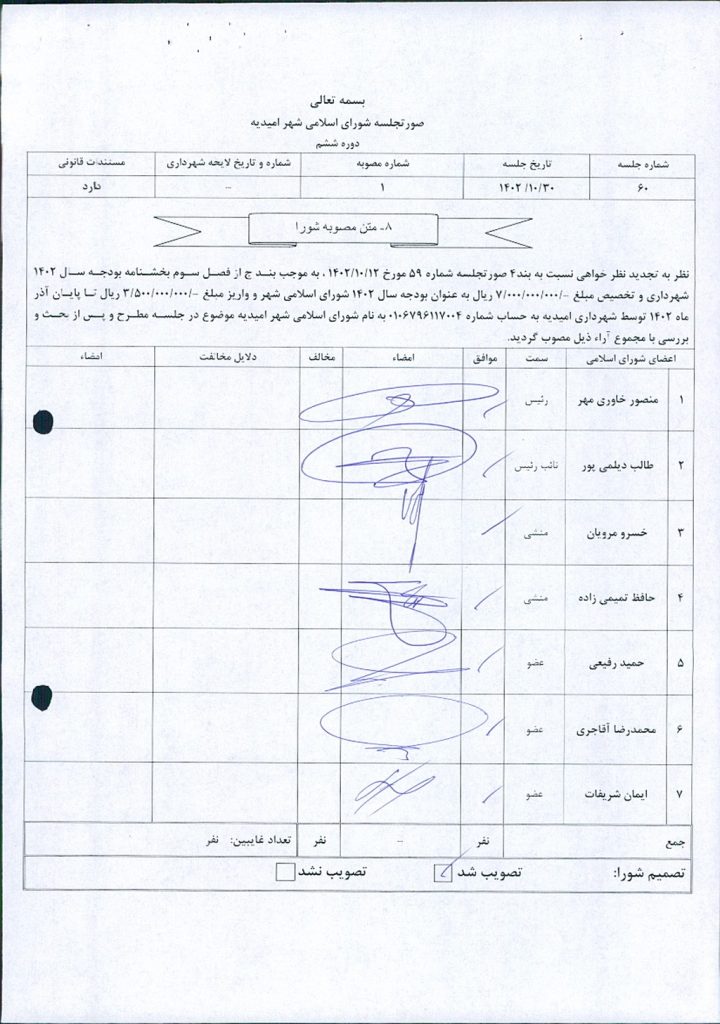 بسمه تعالی
صورتجلسه شورای اسلامی شهر امیدیه
دوره ششم
شماره جلسه تاریخ جلسه شماره مصوبه شماره و تاریخ لایحه شهرداری مستندات قانونی
۶۰ ۱۴۰۲/۱۰/۳۰ ۱ -- دارد
۸- متن مصوبه شورا
نظر به تجدید نظر خواهی نسبت به بند۴ صورتجلسه شماره ۵۹ مورخ ۱۴۰۲/۱۰/۱۲ ، به موجب بند ج از فصل سوم بخشنامه بودجه سال ۱۴۰۲
شهرداری و تخصیص مبلغ -/۷/۰۰۰/۰۰۰/۰۰۰ ریال به عنوان بودجه سال ۱۴۰۲ شورای اسلامی شهر و واریز مبلغ -/۳/۵۰۰/۰۰۰/۰۰۰ ریال تا پایان آذر
ماه ۱۴۰۲ توسط شهرداری امیدیه به حساب شماره ۰۱۰۶۷۹۶۱۱۷۰۰۴ به نام شورای اسلامی شهر امیدیه موضوع در جلسه مطرح و پس از بحث و
بررسی با مجموع آراء ذیل مصوب گردید.
اعضای شورای اسلامی سمت موافق امضاء مخالف دلایل مخالفت امضاء
۱ منصور خاوری مهر رئیس
۲ طالب دیلمی پور نائب رئیس
۳ خسرو مرویان منشی
۴ حافظ تمیمی زاده منشی
۵ حمید رفیعی عضو
۶ محمدرضا آقاجری عضو
۷ ایمان شریفات عضو
جمع نفر -- نفر تعداد غایبین: نفر
تصمیم شورا: تصویب شد تصویب نشد